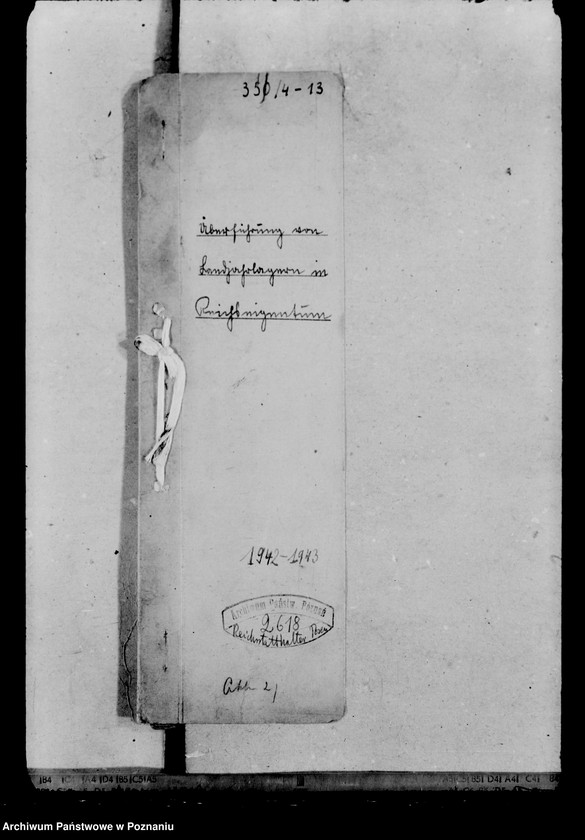 350/4-13
Überführung von
Landjahrlagern in
Reichseigentum
1942-1943
Archiwum Państw. Poznań
2618
Reichsstatthalter Posen
Archiwum Państwowe w Poznaniu